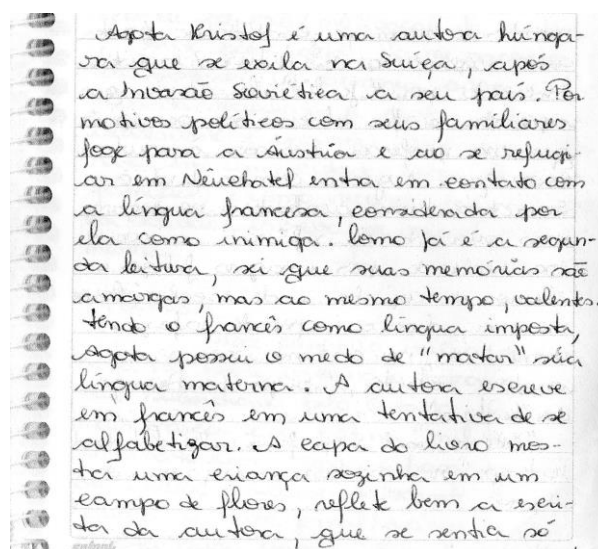 Agota Kristof é uma autora húnga-
ra que se exila na Suíça, após
a Invasão Soviética a seu país. Por
motivos políticos com seus familiares
foge para a Áustria e ao se refugi-
ar em Neuchatel entra em contato com
a língua francesa, considerada por
ela como inimiga. Como já é a segun-
da leitura, sei que suas memórias são
amargas, mas ao mesmo tempo, valentes.
Tendo o francês como língua imposta,
Agota possui o medo de "matar" sua
língua materna. A autora escreve
em francês em uma tentativa de se
alfabetizar. A capa do livro mos-
tra uma criança sozinha em um
campo de flores, reflete bem a escri-
ta da autora, que se sentia só